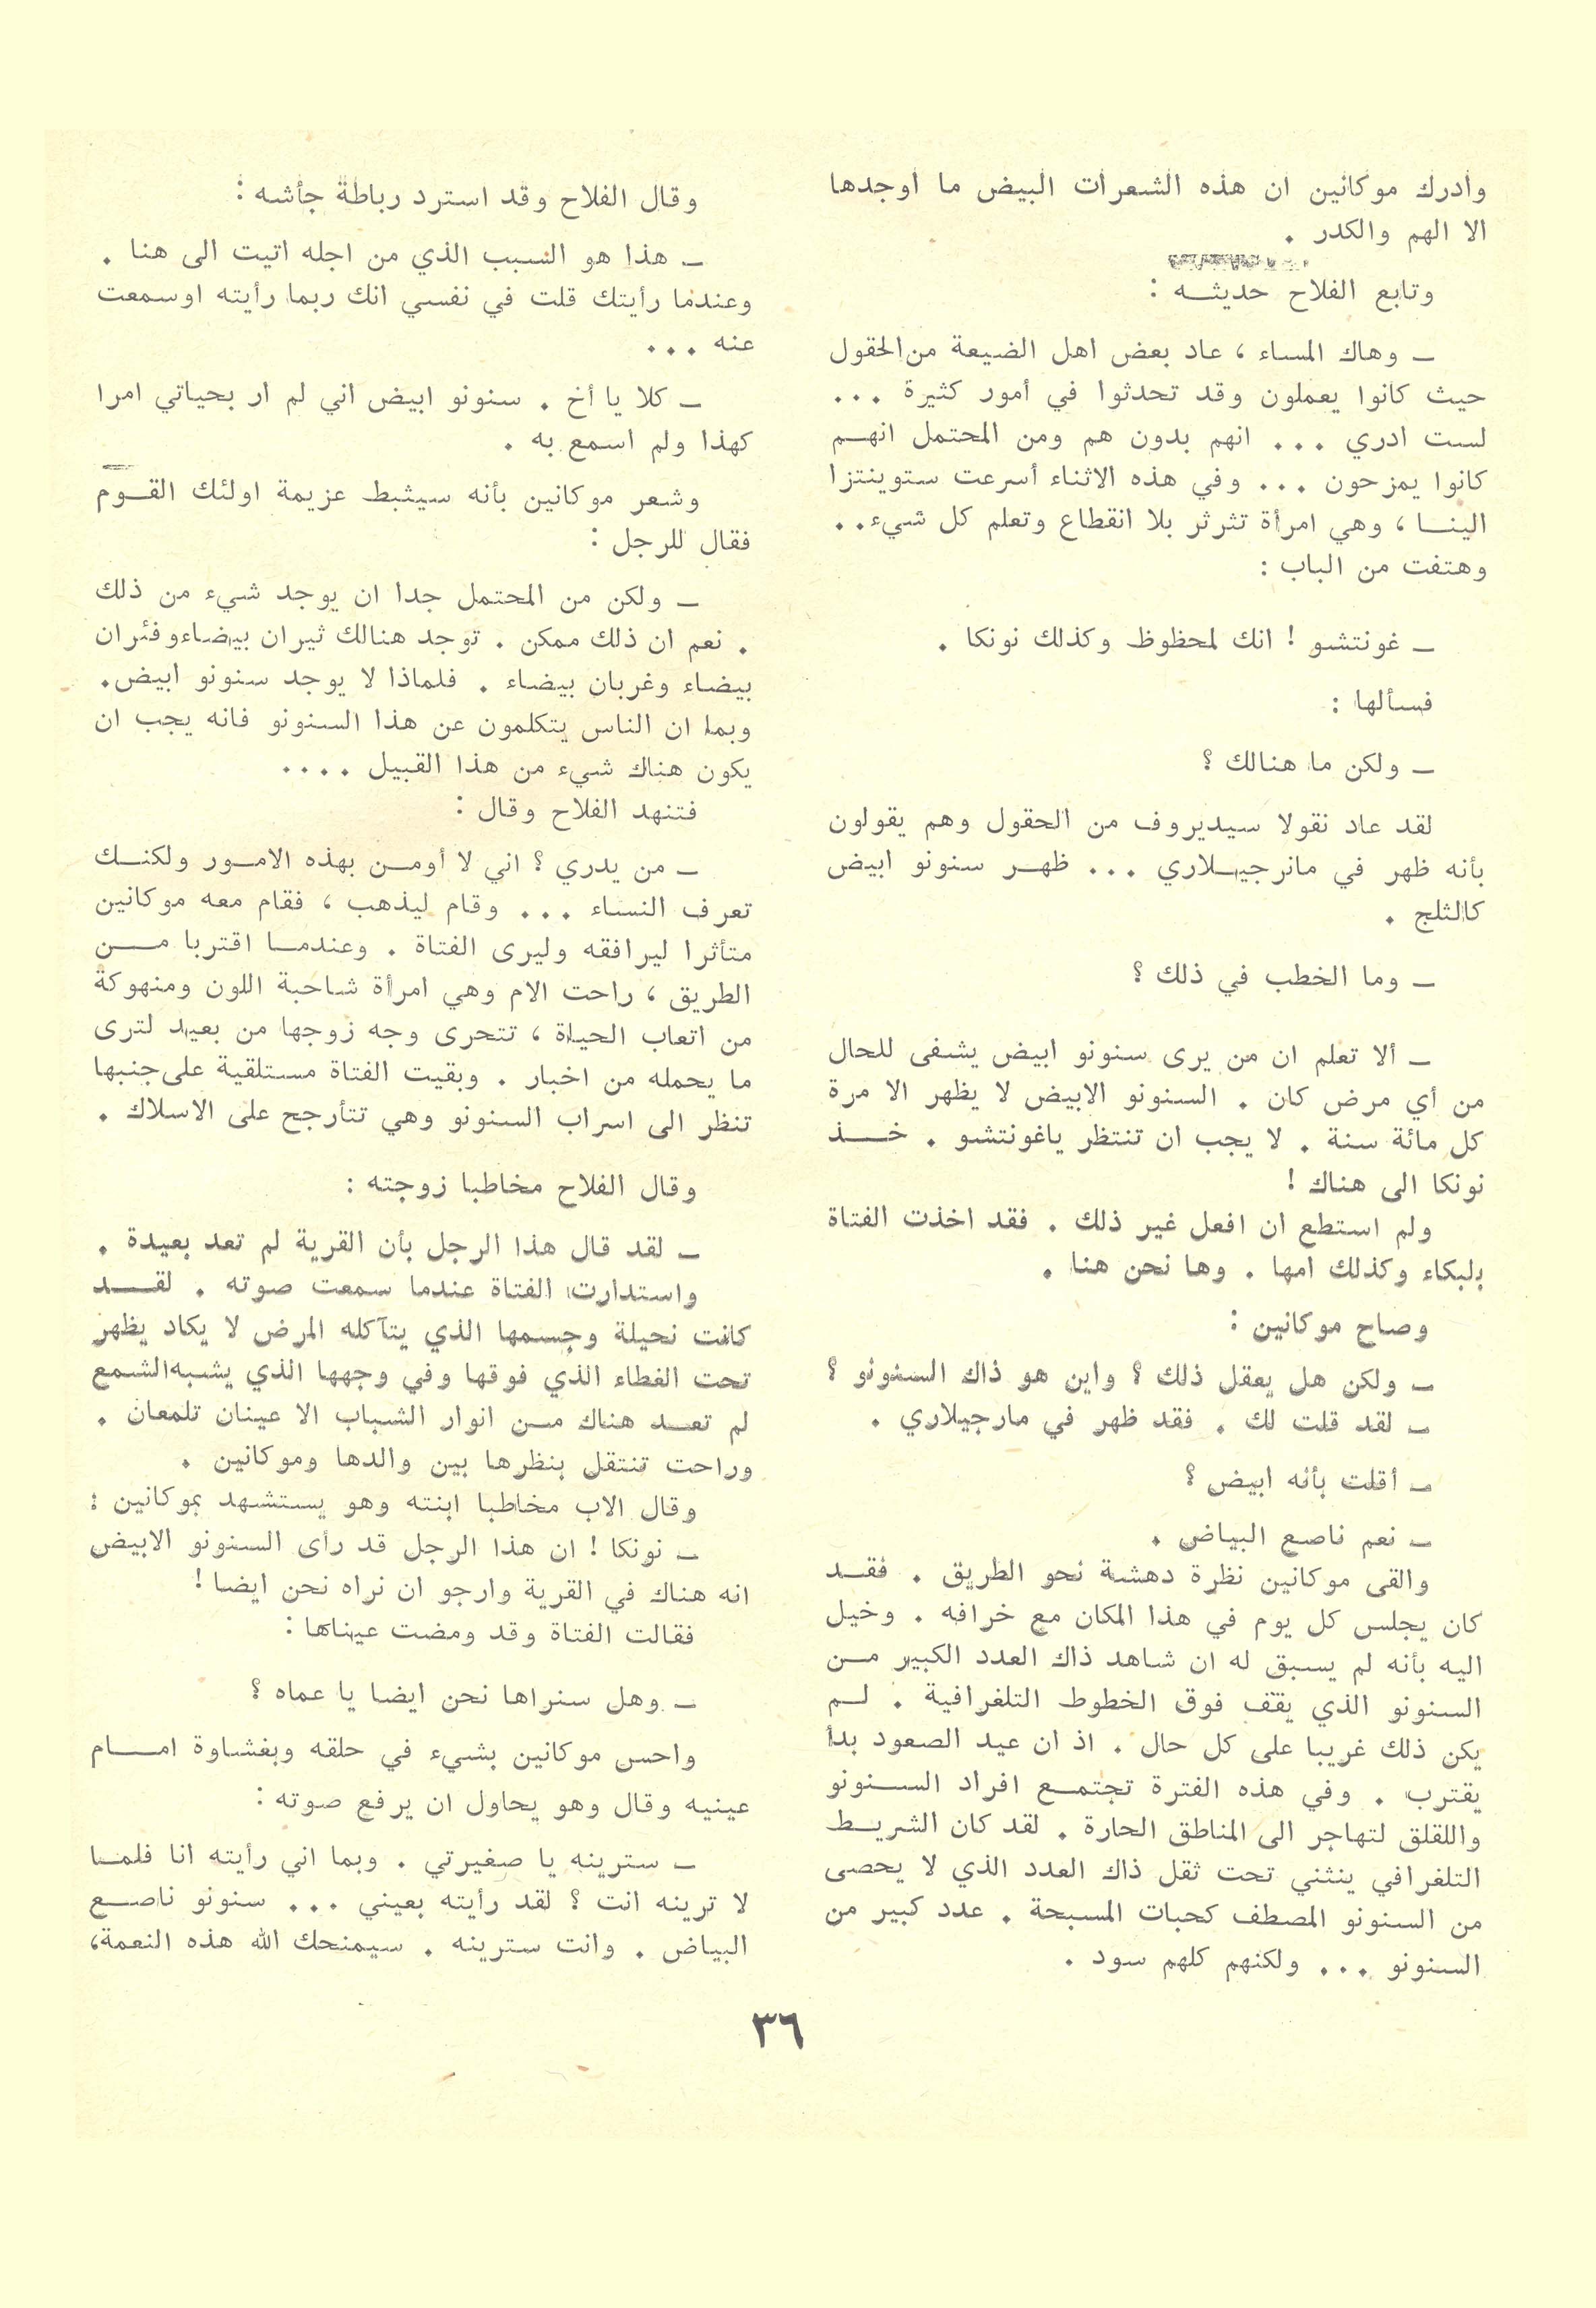 وادرك موكانين ان هذه الشعرات البيض ما اوجدها
الا الهم والكدر .
وتابع الفلاح حديثــه :
ـ وهاك المساء ، عاد بعض اهل الضيعة من الحقول
حيث كانوا يعملون وقد تحدثوا في أمور كثيرة ...
لست ادري ... انهم بدون هم ومن المحتمل انهــم
كانوا يمزحون ... وفي هذه الاثناء أسرعت ستوينتزا
الينــا ، وهي امرأة تثرثر بلا انقطاع وتعلم كل شيء ..
وهتفت من الباب :
ـ غونتشو ! انك لمحظوظ وكذلك نونكا .
فسألها :
ـ ولكن ما هنالك ؟
لقد عاد نقولا سيديروف من الحقول وهم يقولون
بأنه ظهر في مانرجيــلاري ... ظهــر سنونو ابيض
كالثلج .
ـ وما الخطب في ذلك ؟
ـ ألا تعلم ان من يرى سنونو ابيض يشفى للحال
من أي مرض كان . السنونو الابيض لا يظهر الا مرة
كل مائة سنة . لا يجب ان تنتظر ياغونتشو . خــــذ
نونكا الى هناك !
ولم استطع ان افعل غير ذلك . فقد اخذت الفتاة
بلبكاء وكذلك امها . وها نحن هنا .
وصاح موكانين :
ـ ولكن هل يعقل ذلك ؟ واين هو ذاك السنونو ؟
ـ لقد قلت لك . فقد ظهر في مارجيلاري .
ـ أقلت بأنه ابيض ؟
ـ نعم ناصع البياض .
والقى موكانين نظرة دهشة نحو الطريق . فقــد
كان يجلس كل يوم في هذا المكان مع خرافه . وخيل
اليه بأنه لم يسبق له ان شاهد ذاك العدد الكبير مــن
السنونو الذي يقف فوق الخطوط التلغرافية . لــم
يكن ذلك غريبا على كل حال . اذ ان عيد الصعود بدأ
يقترب . وفي هذه الفترة تجتمــع افراد الســـنونو
واللقلق لتهاجر الى المناطق الحارة . لقد كان الشريــط
التلغرافي ينثني تحت ثقل ذاك العدد الذي لا يحصى
من السنونو المصطف كحبات المسبحة . عدد كبير من
السنونو ... ولكنهم كلهم سود .
وقال الفلاح وقد استرد رباطة جأشه :
ـ هذا هو السبب الذي من اجله اتيت الى هنا .
وعندما رأيتك قلت في نفسي انك ربما رأيته اوسمعت
عنه ...
ـ كلا يا أخ . سنونو ابيض اني لم ار بحياتي امرا
كهذا ولم اسمع به .
وشعر موكانين بأنه سيثبط عزيمة اولئك القــوم
فقال للرجل :
ـ ولكن من المحتمل جدا ان يوجد شيء من ذلك
. نعم ان ذلك ممكن . توجد هنالك ثيران بيضاءوفئران
بيضاء وغربان بيضاء . فلماذا لا يوجد سنونو ابيض.
وبما ان الناس يتكلمون عن هذا السنونو فانه يجب ان
يكون هناك شيء من هذا القبيل ....
فتنهد الفلاح وقال :
ـ من يدري ؟ اني لا أومــن بهذه الامــور ولكنــك
تعرف النساء ... وقام ليذهب ، فقام معه موكانين
متأثرا ليرافقه وليرى الفتاة . وعندمــا اقتربا مــــن
الطريق ، راحت الام وهي امرأة شاحبة اللون ومنهوكة
من اتعاب الحياة ، تتحرى وجه زوجها من بعيد لترى
ما يحمله من اخبار . وبقيت الفتاة مستلقية على جنبها
تنظر الى اسراب السنونو وهي تتأرجح على الاسلاك .
وقال الفلاح مخاطبا زوجته :
ـ لقد قال هذا الرجل بأن القرية لم تعد بعيدة .
واستدارت الفتاة عندما سمعت صوته . لقــــد
كانت نحيلة وجسمها الذي يتآكله المرض لا يكاد يظهر
تحت الغطاء الذي فوقها وفي وجهها الذي يشبه الشمع
لم تعــد هناك مــن انوار الشباب الا عينان تلمعان .
وراحت تنتقل بنظرها بين والدها وموكانين .
وقال الاب مخاطبا ابنته وهو يستشهد بموكانين :
ـ نونكا ! ان هذا الرجل قد رأى السنونو الابيض
انه هناك في القرية وارجو ان نراه نحن ايضا !
فقالت الفتاة وقد ومضت عيناها :
ـ وهل سنراها نحن ايضا يا عماه ؟
واحس موكانين بشيء في حلقه وبغشاوة امــــام
عينيه وقال وهو يحاول ان يرفع صوته :
ـ سترينه يا صغيرتي . وبما اني رأيته انا فلمــا
لا ترينه انت ؟ لقد رأيته بعيني ... سنونو ناصــع
البياض . وانت سترينه . سيمنحك الله هذه النعمة،
٣٦